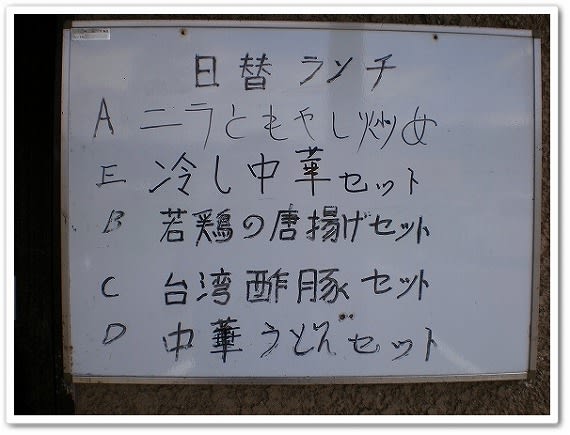 日替ランチ
A ニラともやし炒め
E 冷し中華セット
B 若鶏の唐揚げセット
C 台湾酢豚セット
D 中華うどんセット